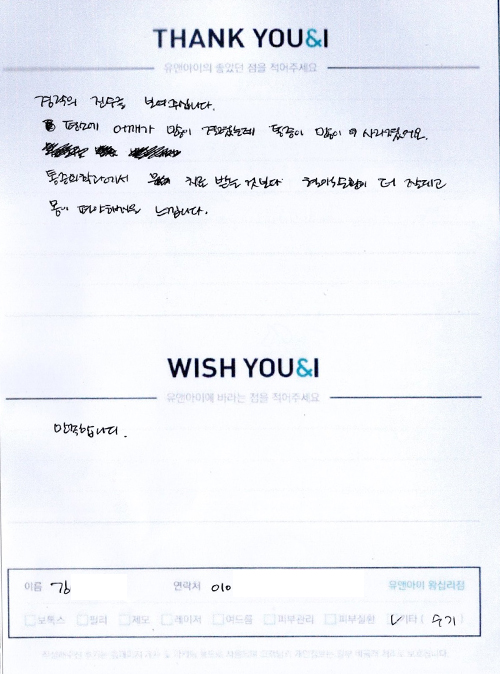 THANK YOU&I
유앤아이의 좋았던 점을 적어주세요
경락의 진수를 보여주십니다.
평소에 어깨가 많이 결렸는데 통증이 많이 사라졌어요.
통증의학과에서 치료 받는 것보다 더 잘되고
몸이 편안해짐을 느낍니다.
WISH YOU&I
유앤아이에 바라는 점을 적어주세요
만족합니다.
이름 김 연락처 010 유앤아이 왕십리점
보톡스 필러 제모 레이저 여드름 피부관리 피부질환 기타 ( 수기 )